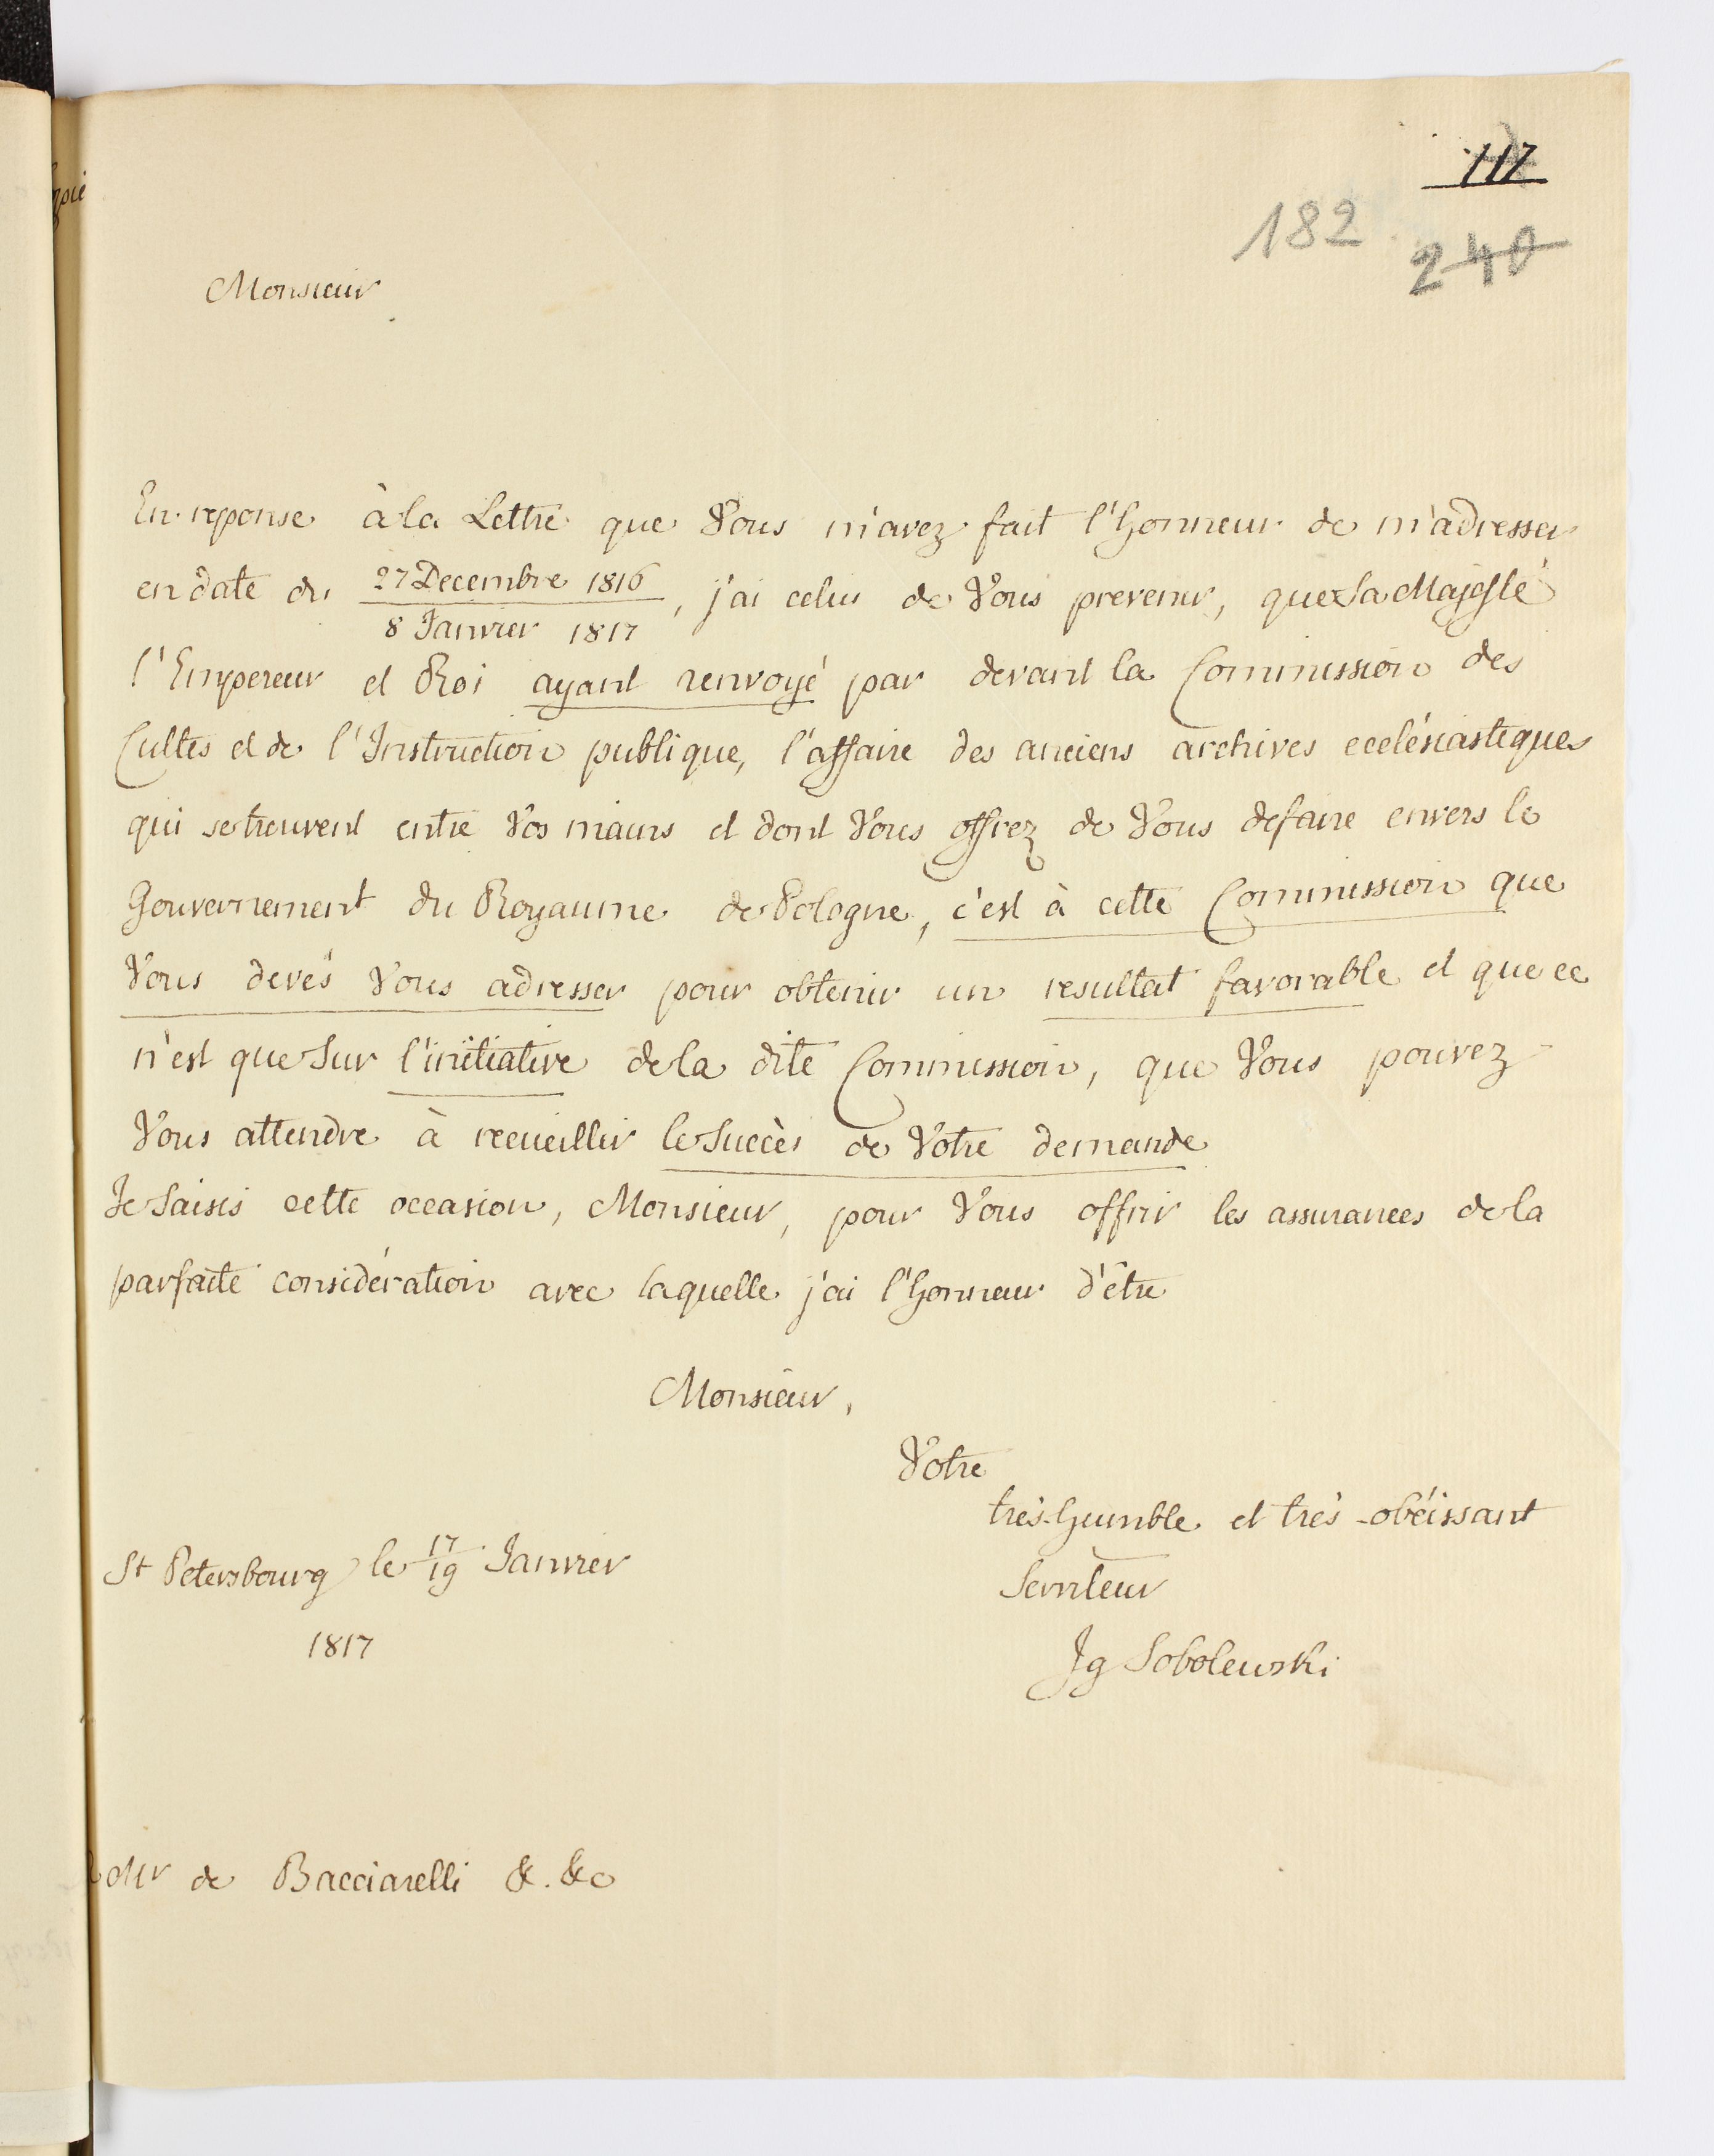 117
182 240
Monsieur
En reponse à la Lettre que Vous m'avez fait l'honneur de m'adresser
en date du 27 Decembre 1816 / 8 Janvier 1817, j'ai celui de Vous prevenir, que Sa Majesté
l'Empereur et Roi ayant renvoyé par devant la Commission des
Cultes et de l'Instruction publique, l'affaire des anciens archives eclésiastiques
qui se trouvent entre Vos mains et dont Vous offrez de Vous defaire envers le
Gouvernement du Royaume de Pologne, c'est à cette Commission que
Vous devés Vous adresser pour obtenir un resultat favorable et que ce
n'est que sur l'initiative de la dite Commission, que Vous pouvez
Vous attendre à recueillir le Succès de Votre demande
Je Saisis cette occasion, Monsieur, pour Vous offrir les assurances de la
parfaite considération avec laquelle j'ai l'honneur d'être
Monsieur,
Votre
très-humble et très-obéissant
St Petersbourg le 17/19 Janvier
Serviteur
1817
Ig Sobolewski
de Bacciarelli &. &c